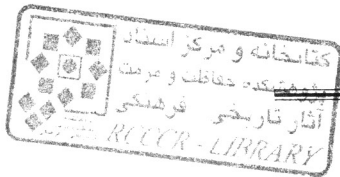 کتابخانه و مرکز اسناد
پژوهشکده حفاظت و مرمت
آثار تاریخی فرهنگی
RCCCR - LIBRARY